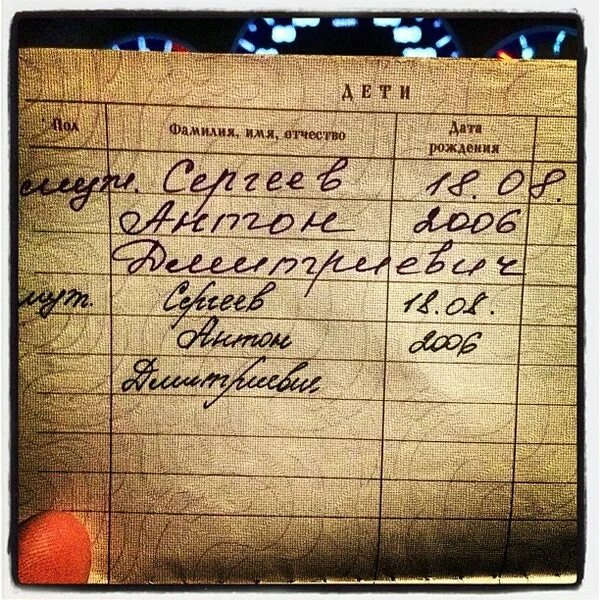 ДЕТИ
Пол Фамилия, имя, отчество Дата рождения
муж. Сергеев 18.08.
Антон 2006
Дмитриевич
муж. Сергеев 18.08.
Антон 2006
Дмитриевич